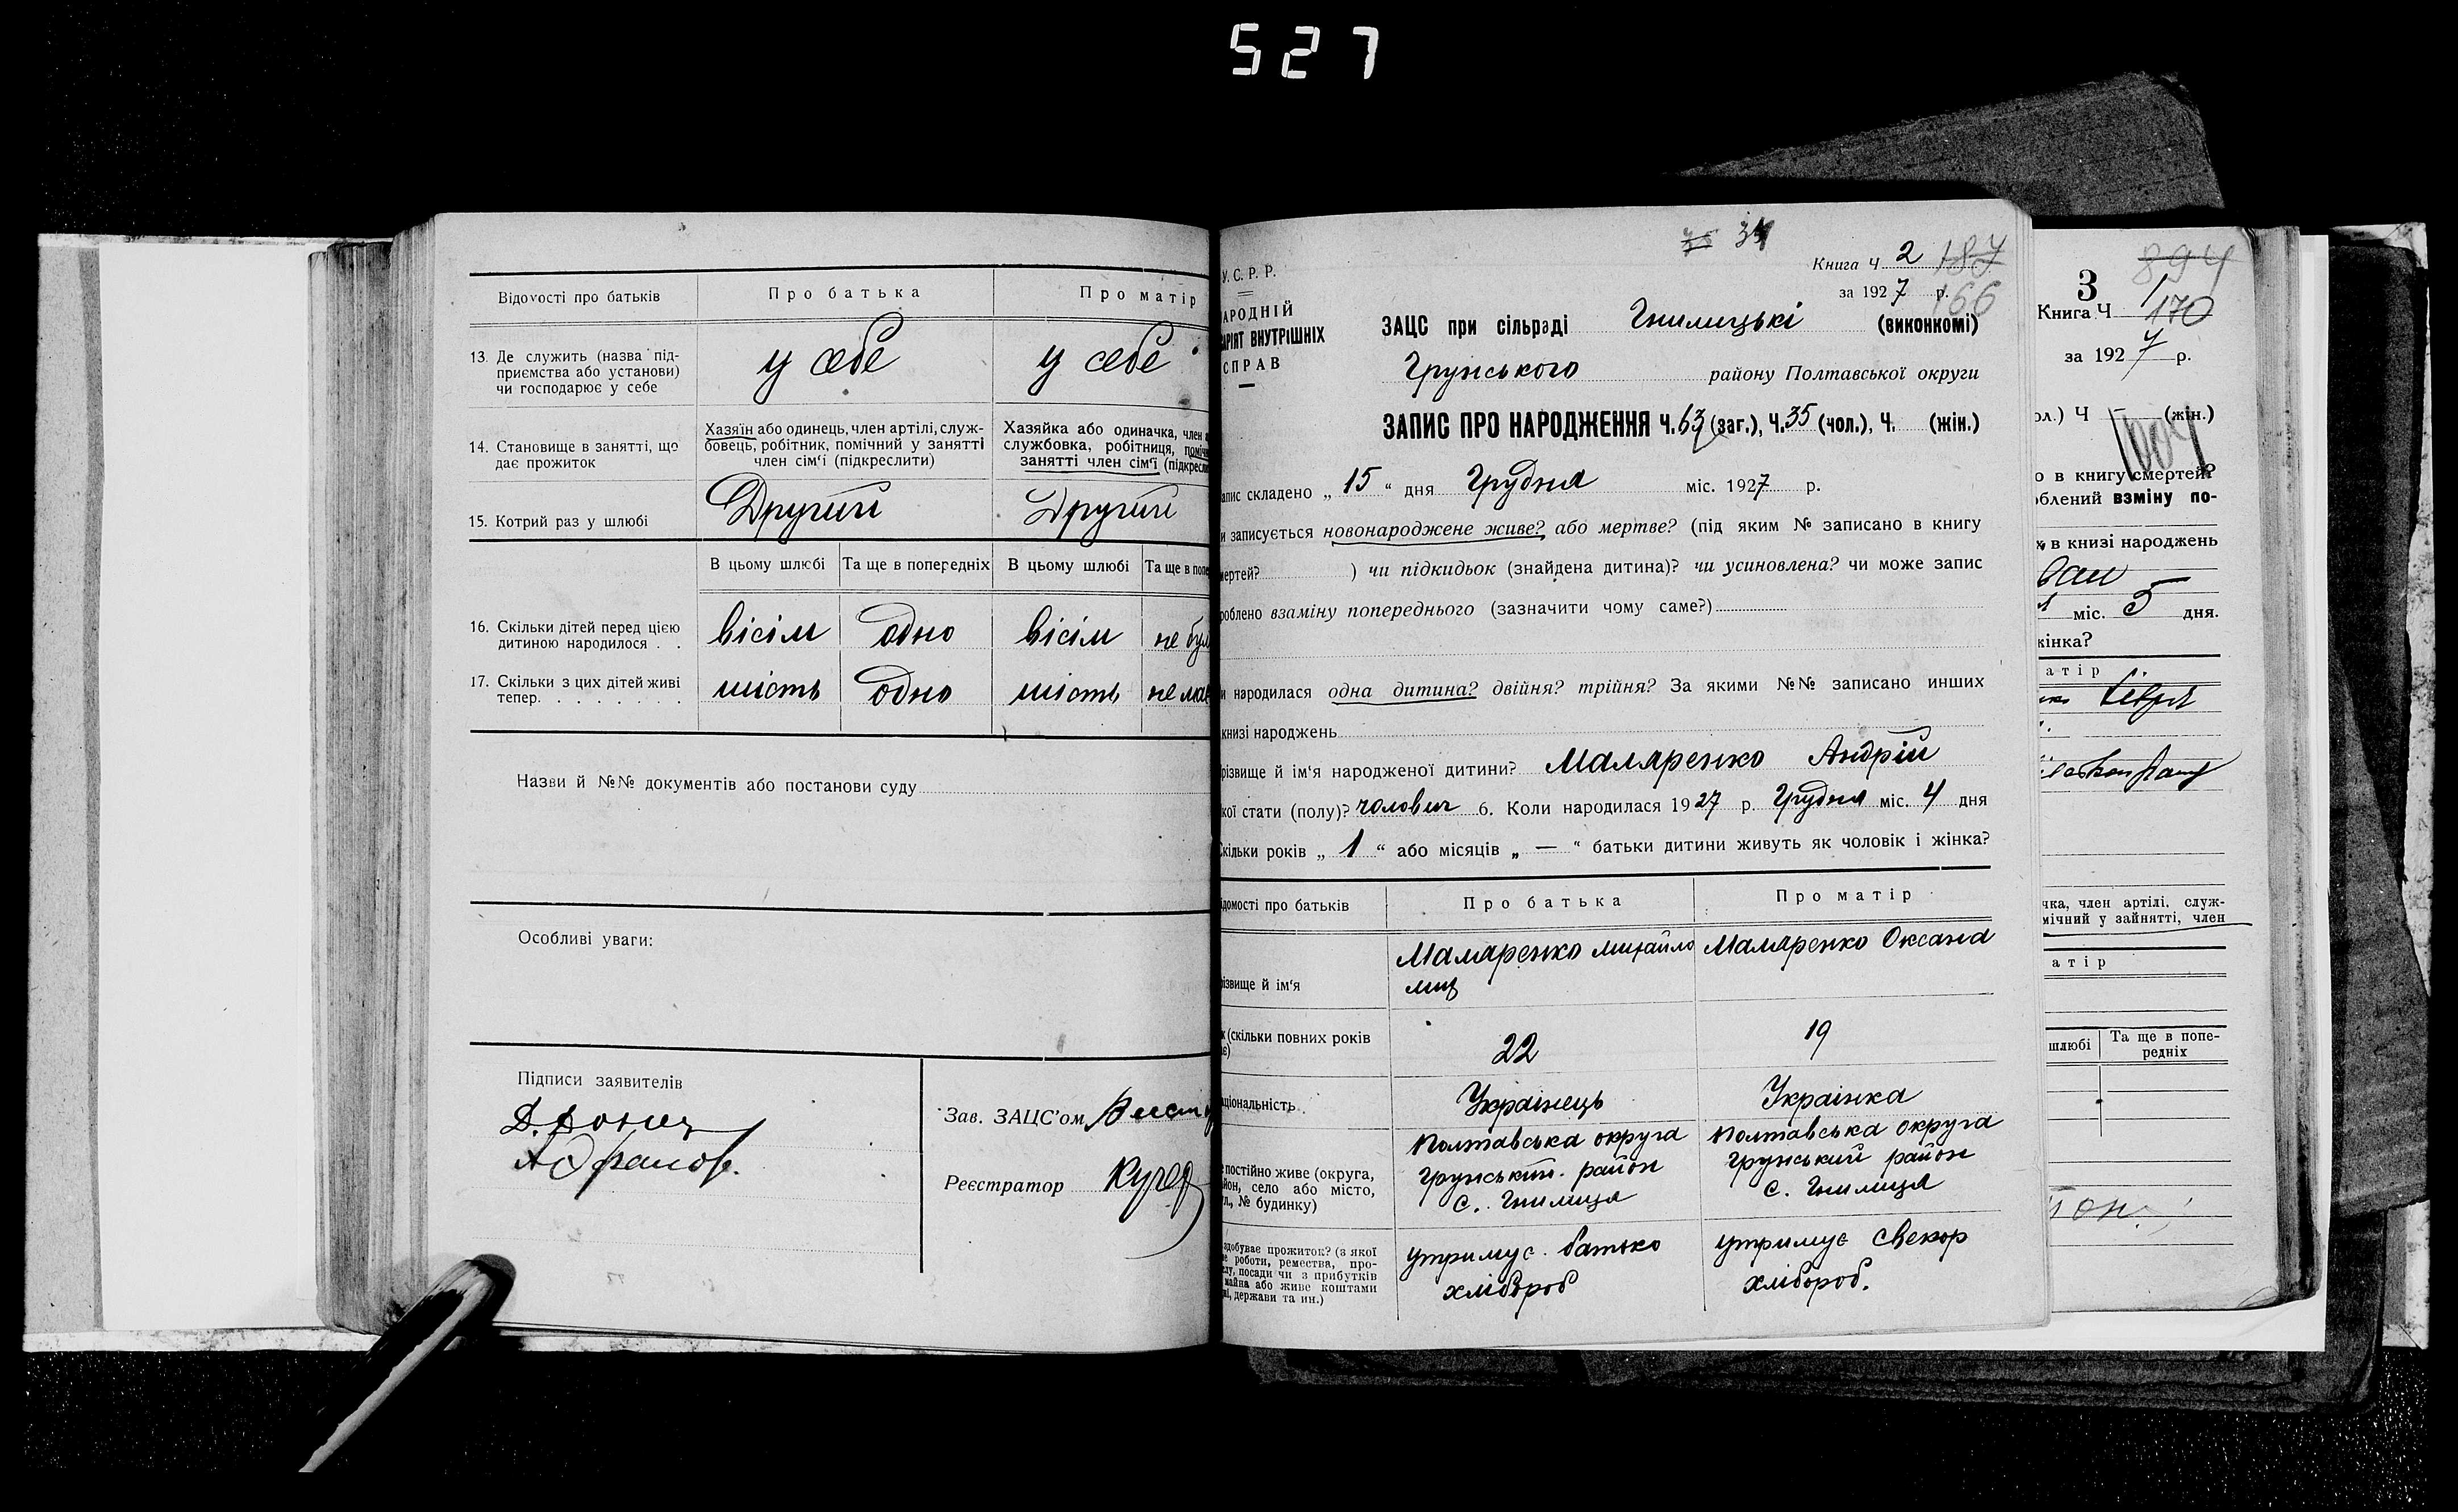 527
Відомості про батьків
Про батька
Про матір
13. Де служить (назва під-
приємства або установи)
чи господарює у себе
у себе
у себе
14. Становище в занятті, що
дає прожиток
Хазяїн або одинець, член артілі, служ-
бовець, робітник, помічний у занятті
член сім'ї (підкреслити)
Хазяйка або одиначка, член
службовка, робітниця,
занятті член сім'ї
15. Котрий раз у шлюбі
Другий
Другий
В цьому шлюбі
Та ще в попередніх
В цьому шлюбі
Та ще в
16. Скільки дітей перед цією
дитиною народилося . .
вісім
одно
вісім
не
17. Скільки з цих дітей живі
тепер. . . . . . . .
шість
одно
шість
Назви й №№ документів або постанови суду
Особливі уваги:
Підписи заявителів
Зав. ЗАЦС'ом
Реєстратор
34
У. С. Р. Р.
ВНУТРІШНІХ
СПРАВ
Книга Ч 2 187
за 1927 р. 166
ЗАЦС при сільраді Гнилицькі (виконкомі)
Грунського району Полтавської округи
ЗАПИС ПРО НАРОДЖЕННЯ Ч. 63 (заг.), Ч. 35 (чол.), Ч. (жін.)
складено „ 15 “ дня Грудня міс. 1927 р.
записується новонароджене живе? або мертве? (під яким № записано в книгу
) чи підкидьок (знайдена дитина)? чи усиновлена? чи може запис
взаміну попереднього (зазначити чому саме?)
народилася одна дитина? двійня? трійня? За якими №№ записано инших
книзі народжень
й ім'я народженої дитини? Маляренко Андрій
стати (полу)? чоловіч 6. Коли народилася 1927 р. Грудня міс. 4 дня
років „ 1 “ або місяців „ — “ батьки дитини живуть як чоловік і жінка?
про батьків
Про батька
Про матір
й ім'я
Маляренко Михайло
Маляренко Оксана
(скільки повних років
22
19
Українець
Українка
постійно живе (округа,
село або місто,
№ будинку)
Полтавська округа
Грунський район
С. Гнилиця
Полтавська округа
Грунський район
с. Гнилиця
здобуває прожиток? (з якої
роботи, ремества, про-
посади чи з прибутків
майна або живе коштами
держави та ин.)
утримує батько
хлібороб
утримує свекор
хлібороб.
3
894
Книга Ч 1
170
за 1927 р.
Ч — (жін.)
в книгу смертей?
взміну по-
в книзі народжень
міс. 5 дня.
член артілі, служ-
у зайнятті, член
шлюбі
Та ще в попе-
редніх